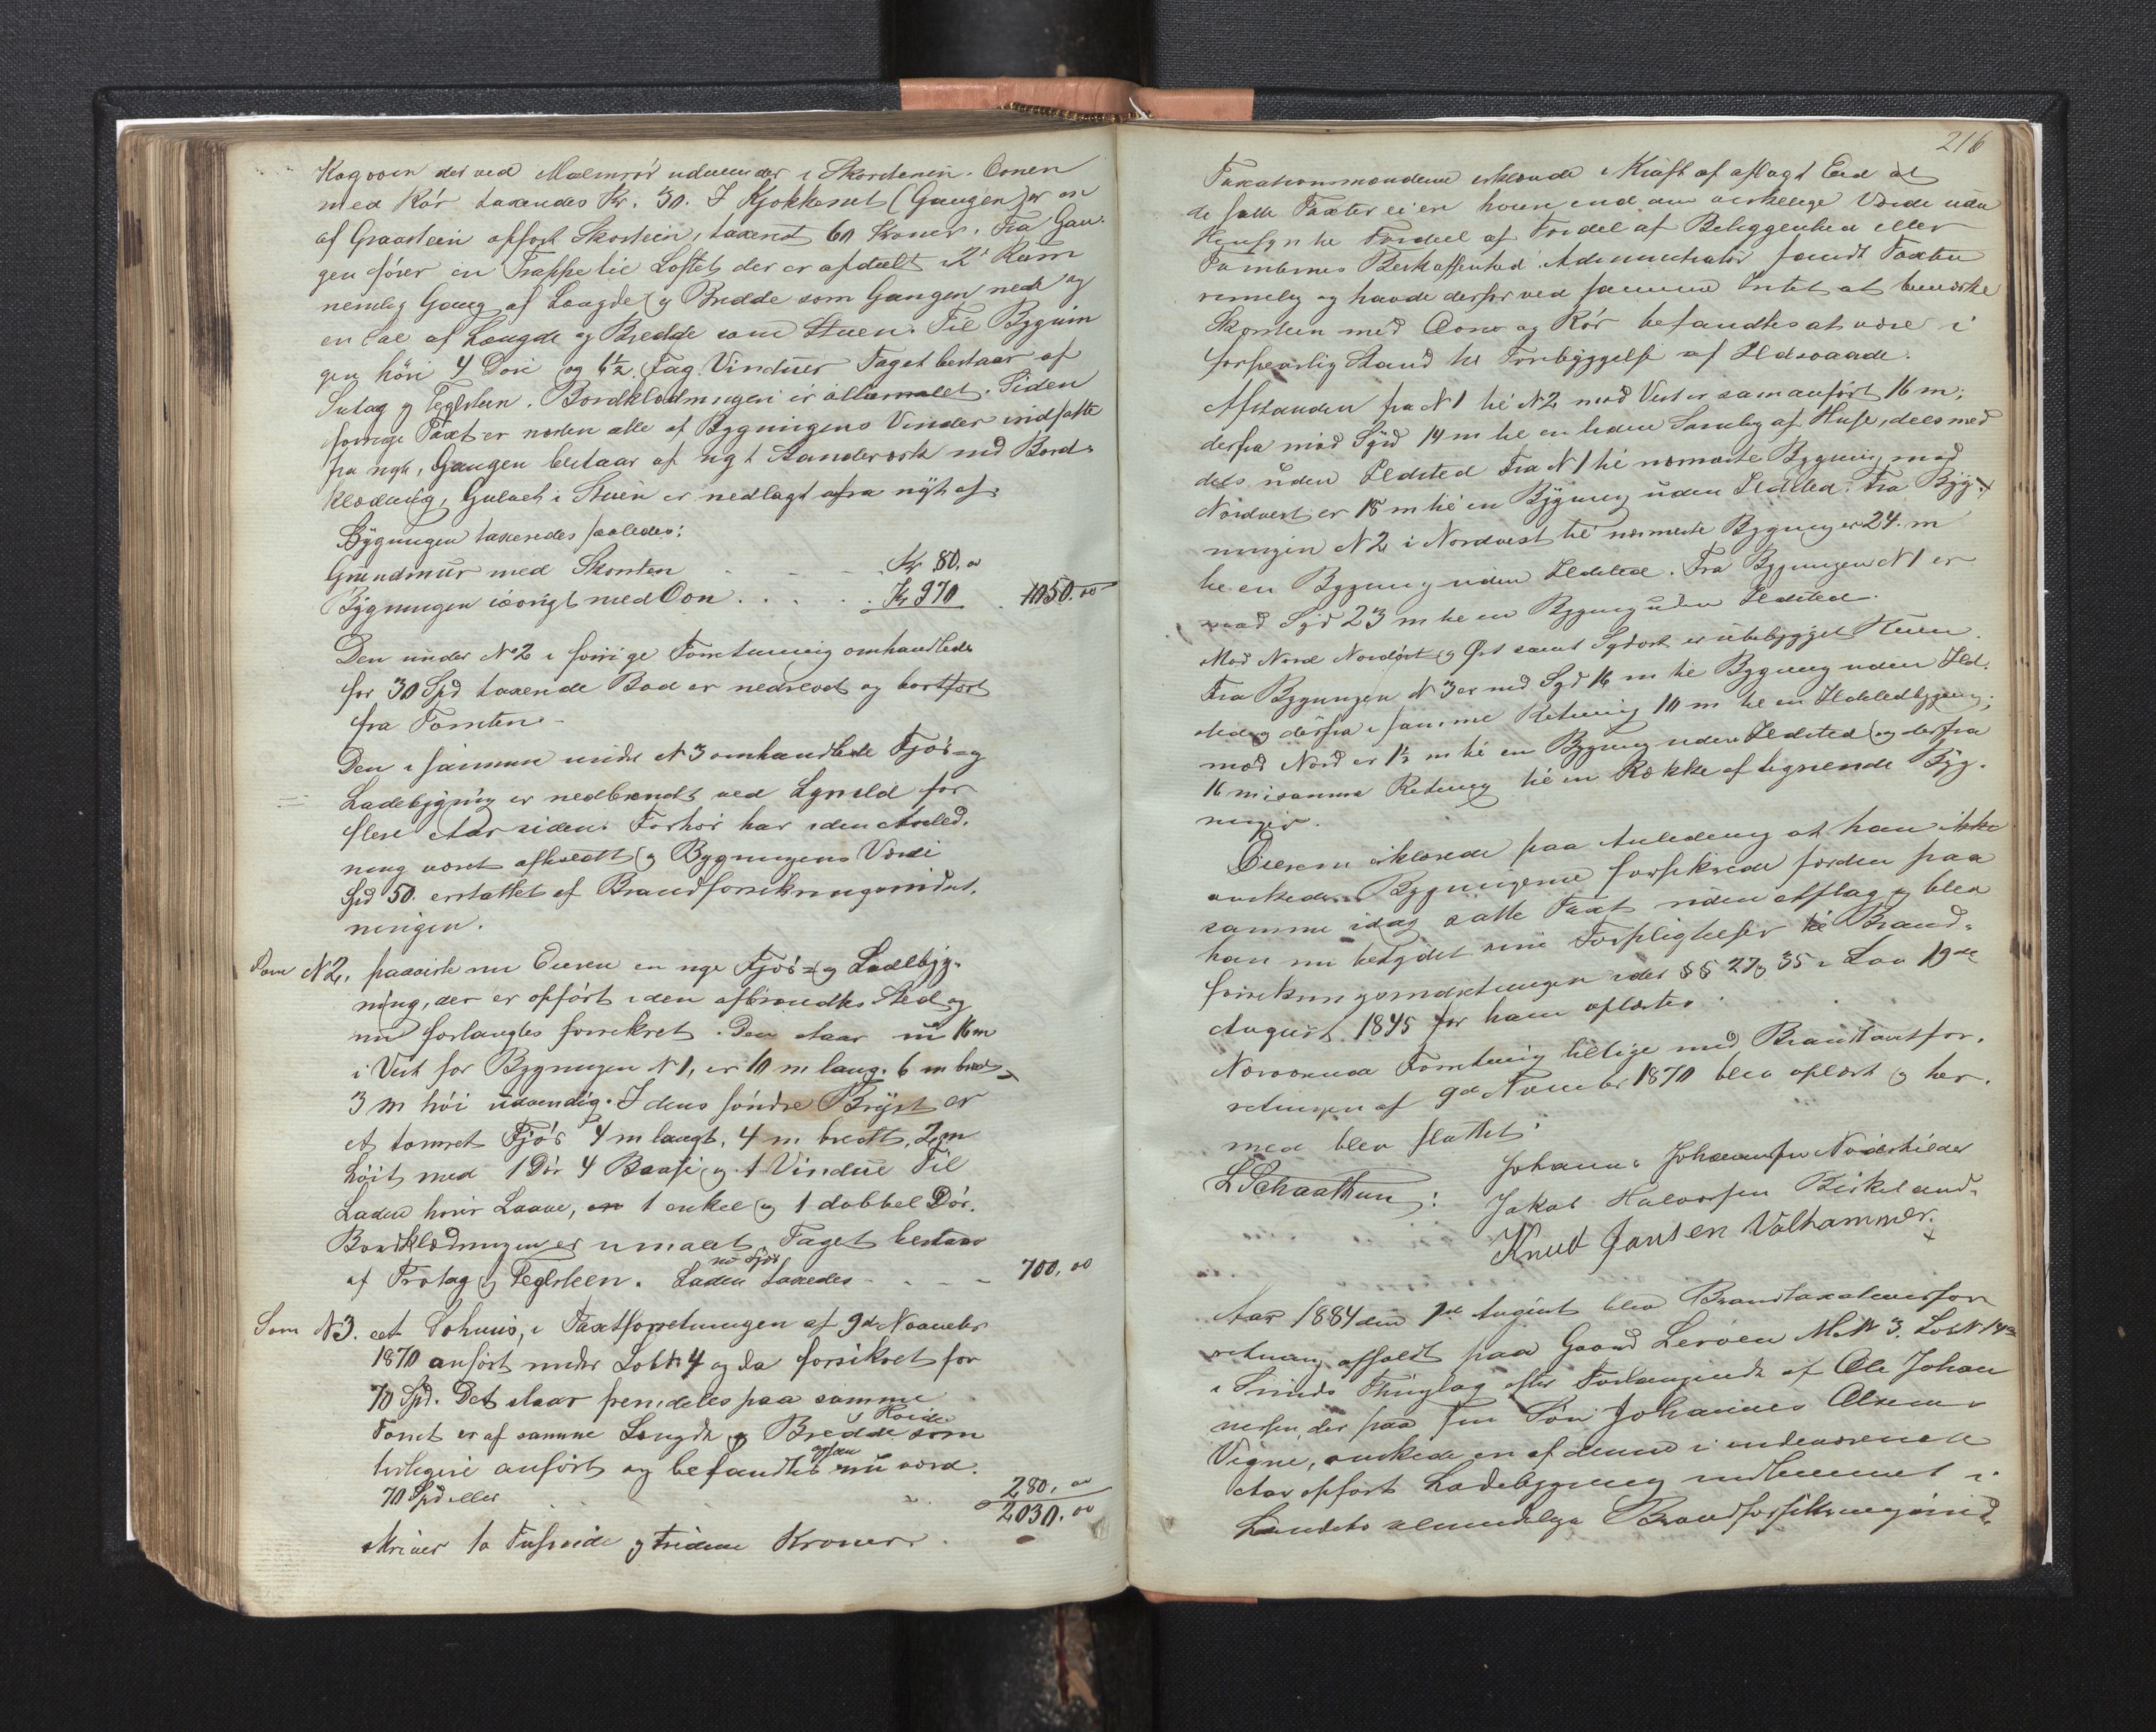 Kogoven der ved Malmrør udmunder i Skorstenen. Ovnen
med Rør taxeredes Kr. 30. I Kjøkkenet (Gangen) er en
af Graasteen opført Skorsteen, taxeret 60 Kroner. Fra Gan-
gen fører en Trappe til Loftet, der er afdeelt i 2 Rum
nemlig Gang af Længde og Bredde som Gangen nede og
en Sal af Længde og Bredde som Stuen. Til Bygnin
gen hører 4 Døre og 6½ Fag Vinduer Taget bestaar af
Sutag og Teglsteen. Bordklædningen er oliemalet. Siden
forrige Taxt er næsten alle af Bygningens Vinduer indsatte
fra nyt, Gangen bestaar af nyt Standerværk med Bord-
klædning, Gulvet i Stuen er nedlagt fra nyt af
Bygningen taxeredes saaledes:
Grundmur med Skorsten - - - Kr 80.00
Bygningen iøvrigt med Ovn . . . . . Kr 970 . 1050.00
Den under No 2 i forrige Forretning omhandlede
for 30 Spd taxerede Bod er nedrevet og bortført
fra Tomten -
Den i samme under N 3 omhandlede Fjøs- og
Ladebygning er nedbrændt ved Lynild for
flere Aar siden. Forhør har i den Anled-
ning været afholdt og Bygningens Værdi
Spd 50. erstattet af Brandforsikringsindret-
ningen.
Som N 2, paaviste nu Eieren en nye Fjøs- og Ladebyg-
ning, der er opført i den afbrændtes Sted og
nu forlangtes forsikret. Den staar nu 16 m
i Vest for Bygningen N 1, er 10 m lang. 6 m bred
3 m høi udvendig. I dens søndre Bryst er
et tømret Fjøs 4 m langt, 4 m bredt, 2 m
høit med 1 Dør 4 Baase og 1 Vindue Til
Laden hører Laave, 1 enkel og 1 dobbel Dør.
Bordklædningen er umalet Taget bestaar
af Trotag og Teglsteen. Laden med Fjøs taxeredes - - - - 700,00
Som N 3. et Sohuus, i Taxtforretningen af 9de November
1870 anført under Lobn 4 og da forsikret for
70 Spd. Det staar fremdeles paa samme
Tomt er af samme Længde og Bredde Høide som
tidligere anført og befandtes ogsaa nu værd.
70 Spd eller . . . 280,00
2030.00
skriver to Tusinde og tredive Kroner.
216
Taxationsmændene erklærede i Kraft af aflagt Eed at
de satte Taxter ei ere høiere end den virkelige Værdi uden
Hensyn til Fordeel af Fordel af Beliggenhed eller
Tomternes Beskaffenhed. Administrator fandt Taxten
rimelig og havde derfor ved samme Intet at bemærke
Skorsteen med Ovne og Rør befandtes at være i
forsvarlig Stand til Forebyggelse af Ildsvaade.
Afstanden fra N 1 til N 2 mod Vest er som anført 16 m;
derfra mod Syd 14 m til en liden Samling af Huse, deels med
deels uden Ildsted Fra N 1 til nærmeste Bygning mod
Nordvest er 18 m til en Bygning uden Ildsted. Fra Byg-
ningen N 2 i Nordvest til nærmeste Bygning er 24. m
til en Bygning uden Ildsted. Fra Bygningen N 1 er
mod Syd 23 m til en Bygning uden Ildsted.
Mod Nord Nordøst og Øst samt Sydost er ubebygget
Fra Bygningen N 3 er mod Syd 16 m til Bygning uden Ild-
sted og derfra i samme Retning 10 m til en Ildstedbygning;
mod Nord er 1½ m til en Bygning uden Ildsted og derfra
16 m i samme Retning til en Række af lignende Byg-
ninger.
Eieren erklærede paa Anledning at han ikke
ønskede Bygningerne forsikrede forden paa
samme idag satte Taxt uden Afslag og blev
han nu betydet sine Forpligtelser til Brand-
forsikringsindretningen idet §§ 27 og 35 i Lov 19de
August 1845 for ham oplæstes.
Nærværende Forretning tillige med Brandtaxtfor-
retningen af 9de November 1870 blev oplæst og her-
med blev sluttet.
L Schaathun : Johannes Johannessen Nordskilder
Jakob Halvorsen Birkeland.
Knud Jansen Valhammer.
Aar 1884 den 1de August blev Brandtaxationsfor
retning afholdt paa Gaard Lerøen M N 3. Lob N 14
i Sunds Thinglag efter Forlangende af Ole Johan
nesen, der paa sin Søn Johannes Olsens
Vegne, ønskede en af denne i indeværende
Aar opført Ladebygning indlemmet i
Landets almindelige Brandforsikringsind-